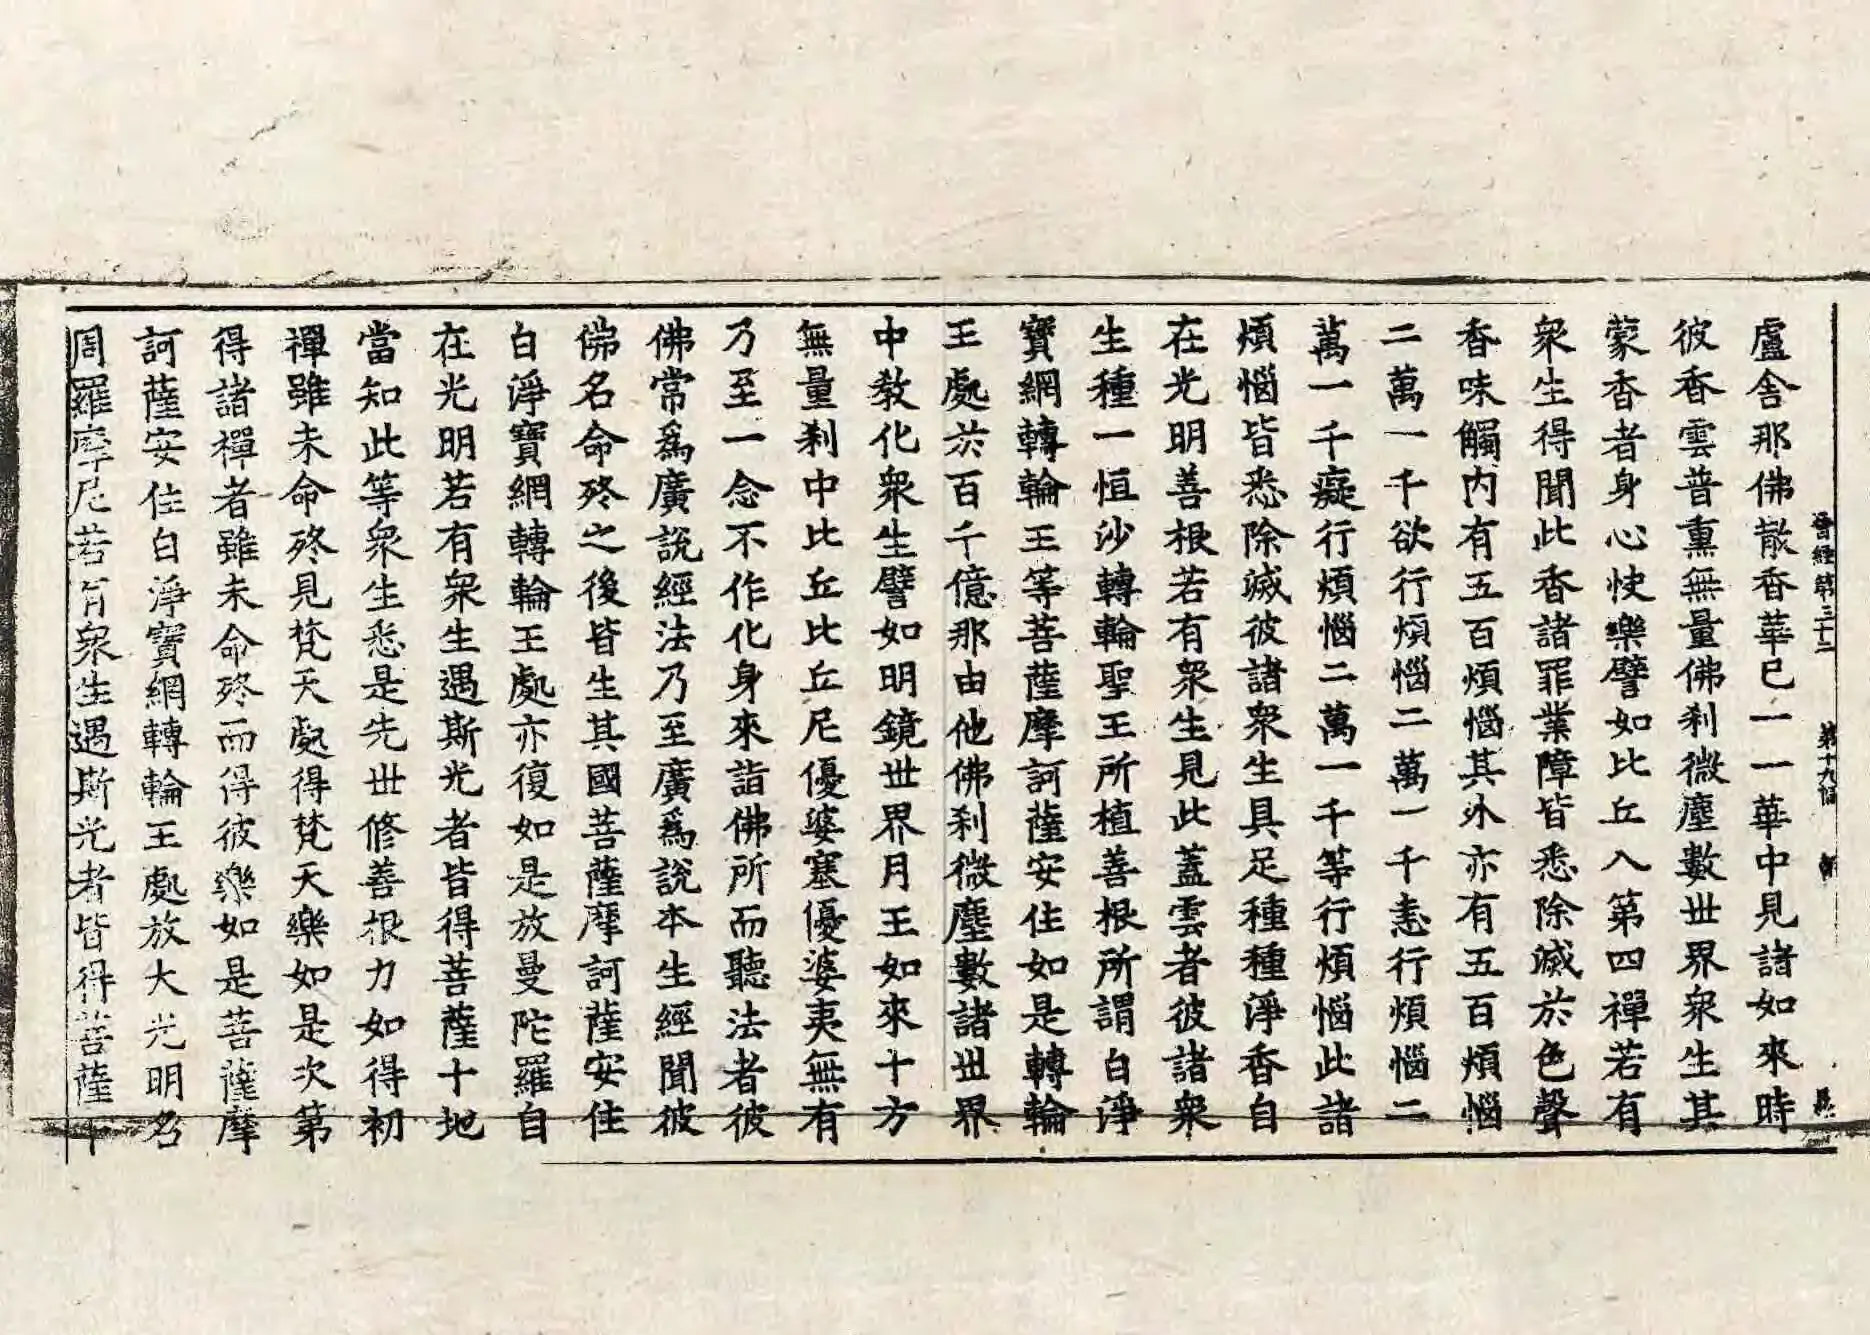 晉經第三十三　第十九幅
盧舍那佛散香華已一一華中見諸如來時
彼香雲普熏無量佛刹微塵數世界衆生其
蒙香者身心快樂譬如比丘入第四禪若有
衆生得聞此香諸罪業障皆悉除滅於色聲
香味觸内有五百煩惱其外亦有五百煩惱
二萬一千欲行煩惱二萬一千恚行煩惱二
萬一千癡行煩惱二萬一千等行煩惱此諸
煩惱皆悉除滅彼諸衆生具足種種淨香自
在光明善根若有衆生見此蓋雲者彼諸衆
生種一恒沙轉輪聖王所植善根所謂白淨
寶網轉輪王等菩薩摩訶薩安住如是轉輪
王處於百千億那由他佛刹微塵數諸世界
中教化衆生譬如明鏡世界月王如來十方
無量刹中比丘比丘尼優婆塞優婆夷無有
乃至一念不作化身來詣佛所而聽法者彼
佛常爲廣說經法乃至廣爲說本生經聞彼
佛名命終之後皆生其國菩薩摩訶薩安住
白淨寶網轉輪王處亦復如是放曼陀羅自
在光明若有衆生遇斯光者皆得菩薩十地
當知此等衆生悉是先世修善根力如得初
禪雖未命終見梵天處得梵天樂如是次第
得諸禪者雖未命終而得彼樂如是菩薩摩
訶薩安住白淨寶網轉輪王處放大光明名
周羅摩尼若有衆生遇斯光者皆得菩薩十